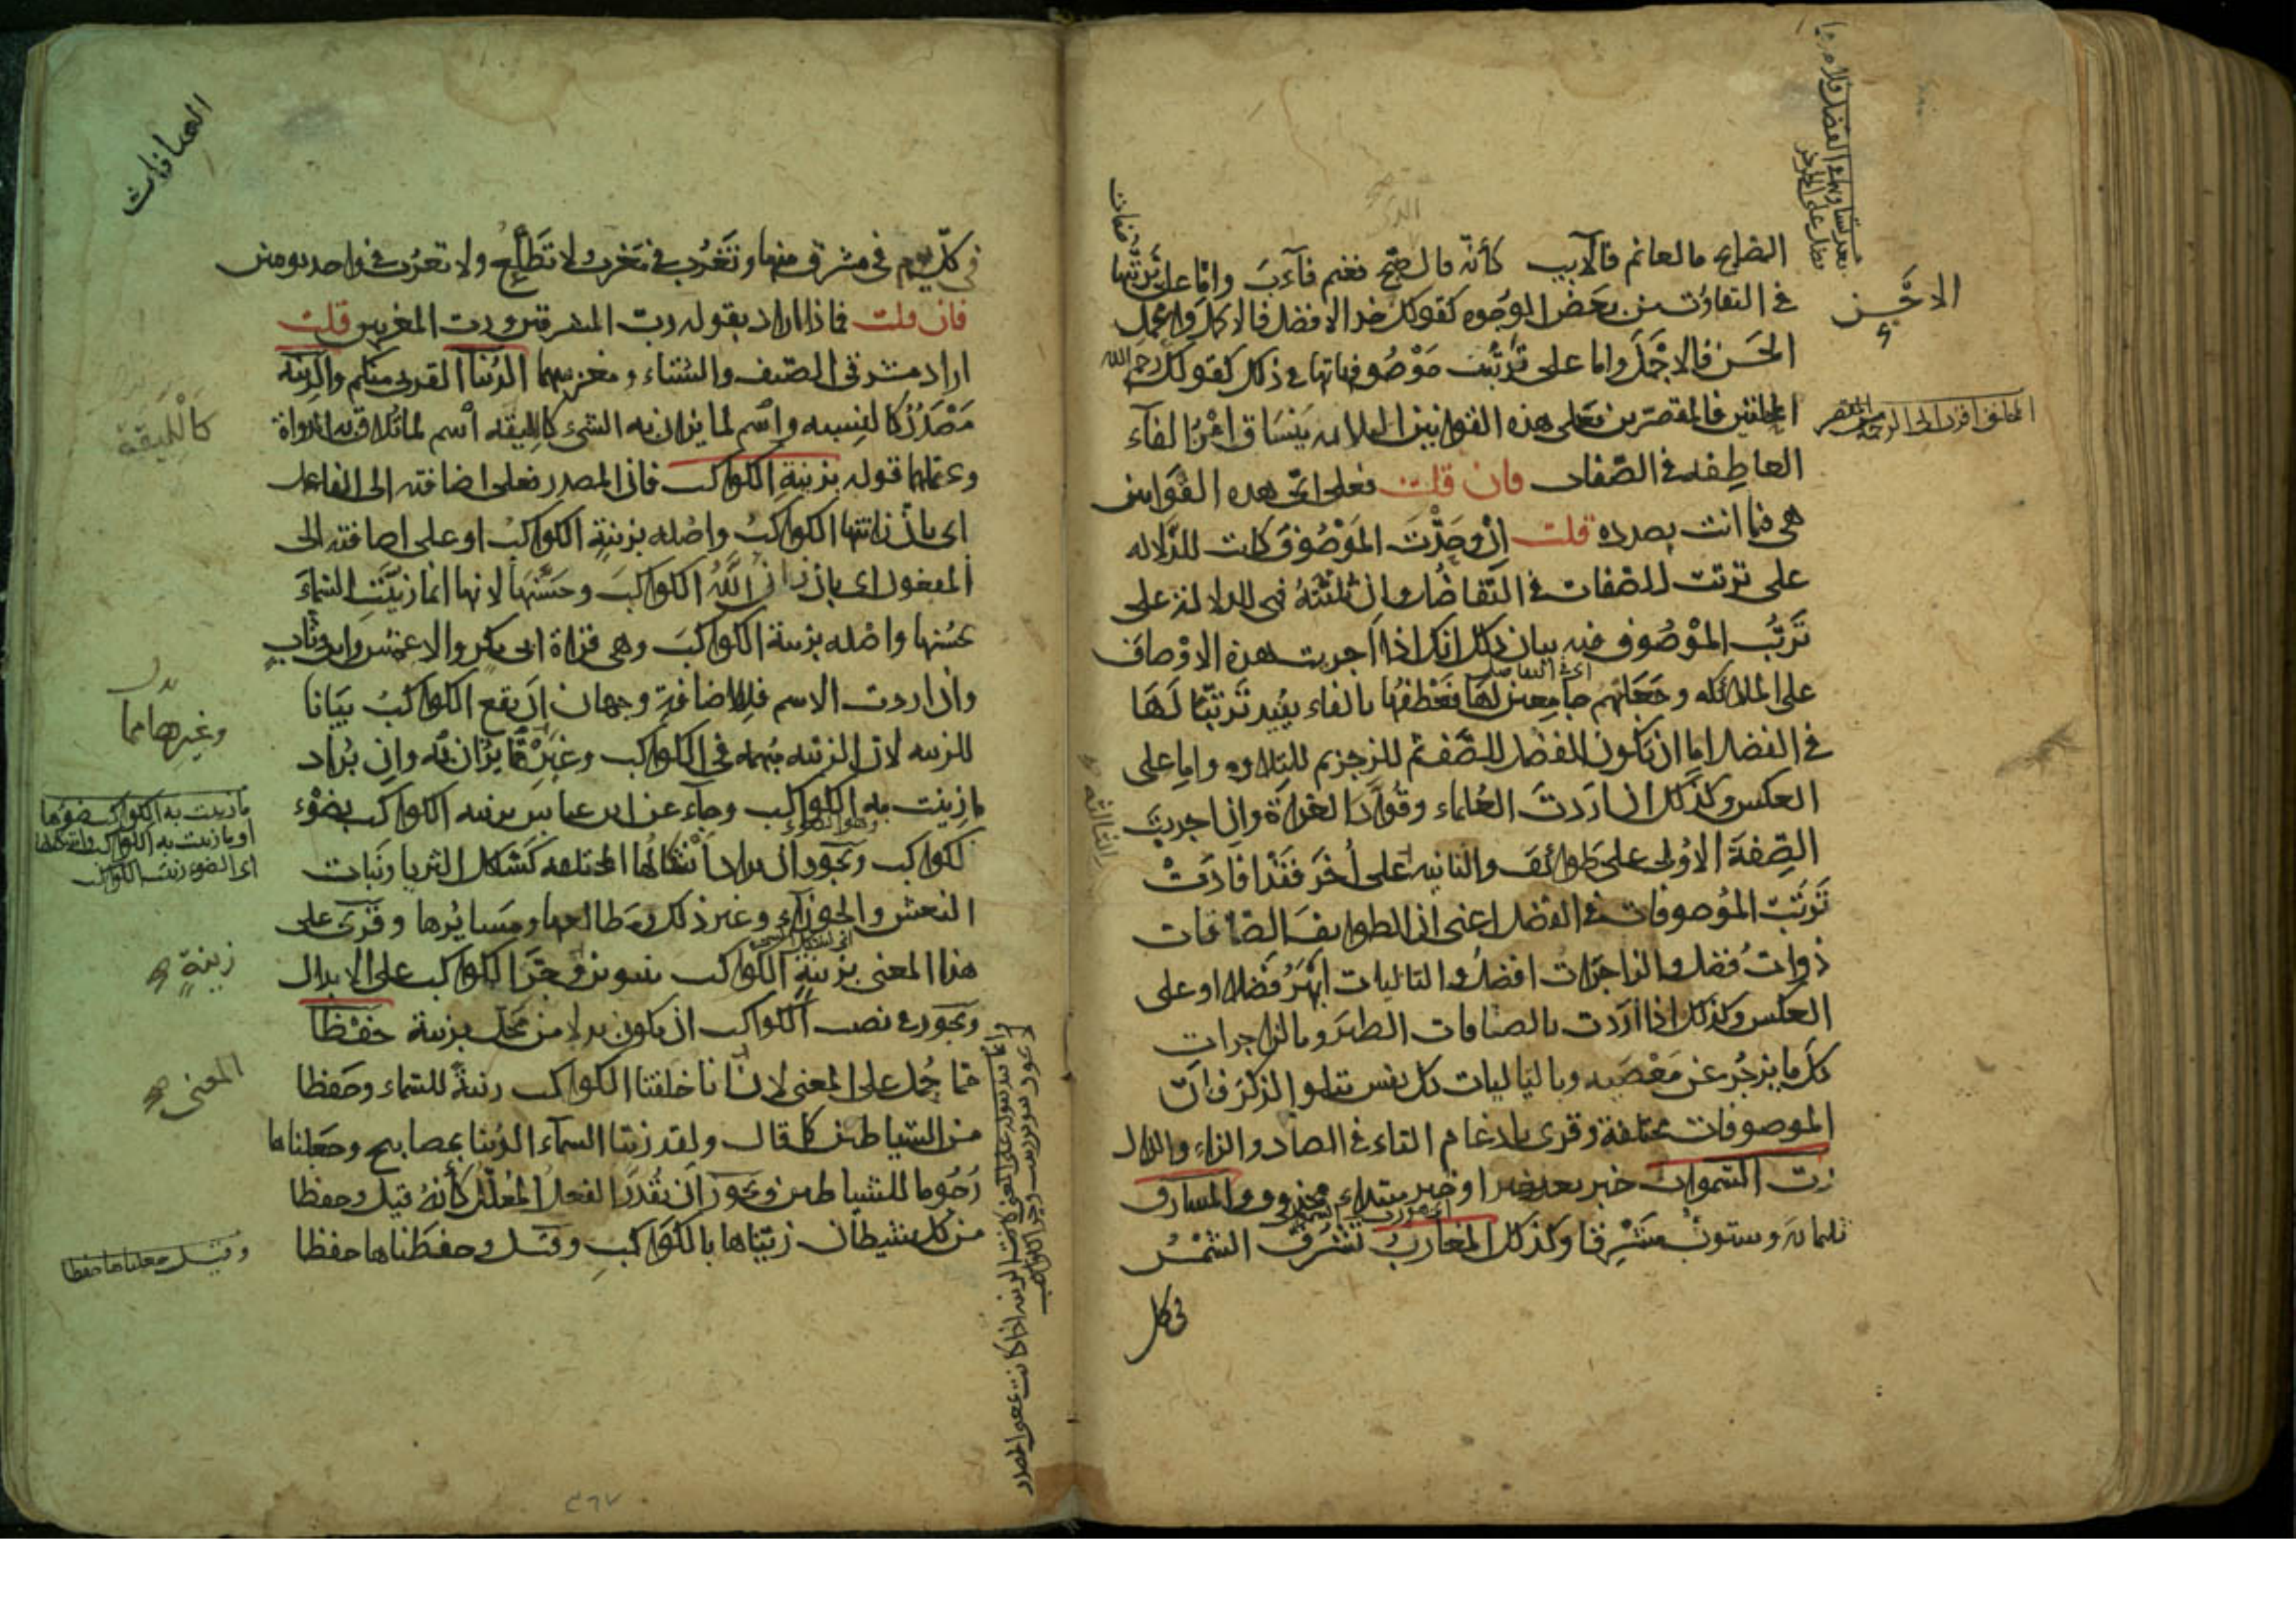 الصابح فالغانم فالآيب كأنه قال الذى صبح فغنم فآب واما على ترتبها
فى التفاوت من بعض الوجوه كقولك خذ الافضل فالاكمل واعمل
الاحسن فالاجمل واما على ترتب موصوفاتها فى ذلك كقولك رحم الله
المحلقين فالمقصرين فعلى هذه القوانين الثلاثه ينساق امر الفاء
العاطفه فى الصفات فان قلت فعلى اى هذه القوانين
هى فيما انت بصدده قلت ان وحدت الموصوف كانت للدلاله
على ترتب الصفات فى التفاضل وان ثلثته فهى للدلالة على
ترتب الموصوف فيه بيان ذلك انك اذا اجريت هذه الاوصاف
على الملائكه وجعلتهم جامعين لها فعطفها بالفاء يفيد ترتبا لها
فى الفضل اما ان يكون الفضل للصف ثم للزجر ثم للتلاوه واما على
العكس وكذلك ان اردت العلماء وقواد الغزاة وان اجريت
الصفة الاولى على طوائف والثانيه على أخر فقد افادت
ترتب الموصوفات فى الفضل اعنى ان الطوايف الصافات
ذوات فضل والزاجرات افضل والتاليات ابهر فضلا او على
العكس وكذلك اذا اردت بالصافات الطير وبالزاجرات
كل ما يزجر عن معصيه وبالتاليات كل نفس تتلو الذكر فان
الموصوفات مختلفة وقرى بادغام التاء فى الصاد والزاء والذال
رب السموات خبر بعد خبر او خبر مبتداء محذوف والمشارق
ثلثمائه وستون مشرقا وكذلك المغارب تشرق الشمس
فى كل
الصافات
فى كل يوم فى مشرق منها وتغرب فى مغرب لا تطلع ولا تغرب فى واحد يومين
فان قلت فماذا اراد بقوله رب المشرقين ورب المغربين قلت
اراد مشرقى الصيف والشتاء ومغربيهما الدنيا القربى منكم والزينة
مصدر كالنسبه واسم لما يزان به الشىء كالليقه اسم لما تلاق به الدواة
ويحتملهما قوله بزينة الكواكب فان المصدر فعلى اضافته الى الفاعل
اى بان زانتها الكواكب واصله بزينة الكواكب او على اضافته الى
المفعول اى بان زان الله الكواكب وحسنها لانها انما زينت السماء
بحسنها واصله بزينة الكواكب وهى قراة ابى بكر والاعمش وابن وثاب
وان اردت الاسم فللاضافة وجهان ان يقع الكواكب بيانا
للزينه لان الزينه مبهمه فى الكواكب وغيرها مما يزان به وان يراد
ما زينت به الكواكب وجاء عن ابن عباس بزينه الكواكب بضوء
الكواكب ويجوز ان يراد اشكالها المختلفه كشكل الثريا وبنات
النعش والجوزاء وغير ذلك ومطالعها ومسايرها وقرى على
هذا المعنى بزينة الكواكب بتنوين وجر الكواكب على الابدال
ويجوز فى نصب الكواكب ان يكون بدلا من محل بزينة حفظا
مما حمل على المعنى لان انا خلقنا الكواكب زينة للسماء وحفظا
من الشياطين كما قال ولقد زينا السماء الدنيا بمصابيح وجعلناها
رجوما للشياطين ويجوز ان يقدر الفعل المعلل كأنه قيل وحفظا
من كل شيطان زيناها بالكواكب وقيل وحفظناها حفظا
كالليقة
وغيرها مما
زينة
المعنى
وقيل جعلناها حفظا
٣٦٧